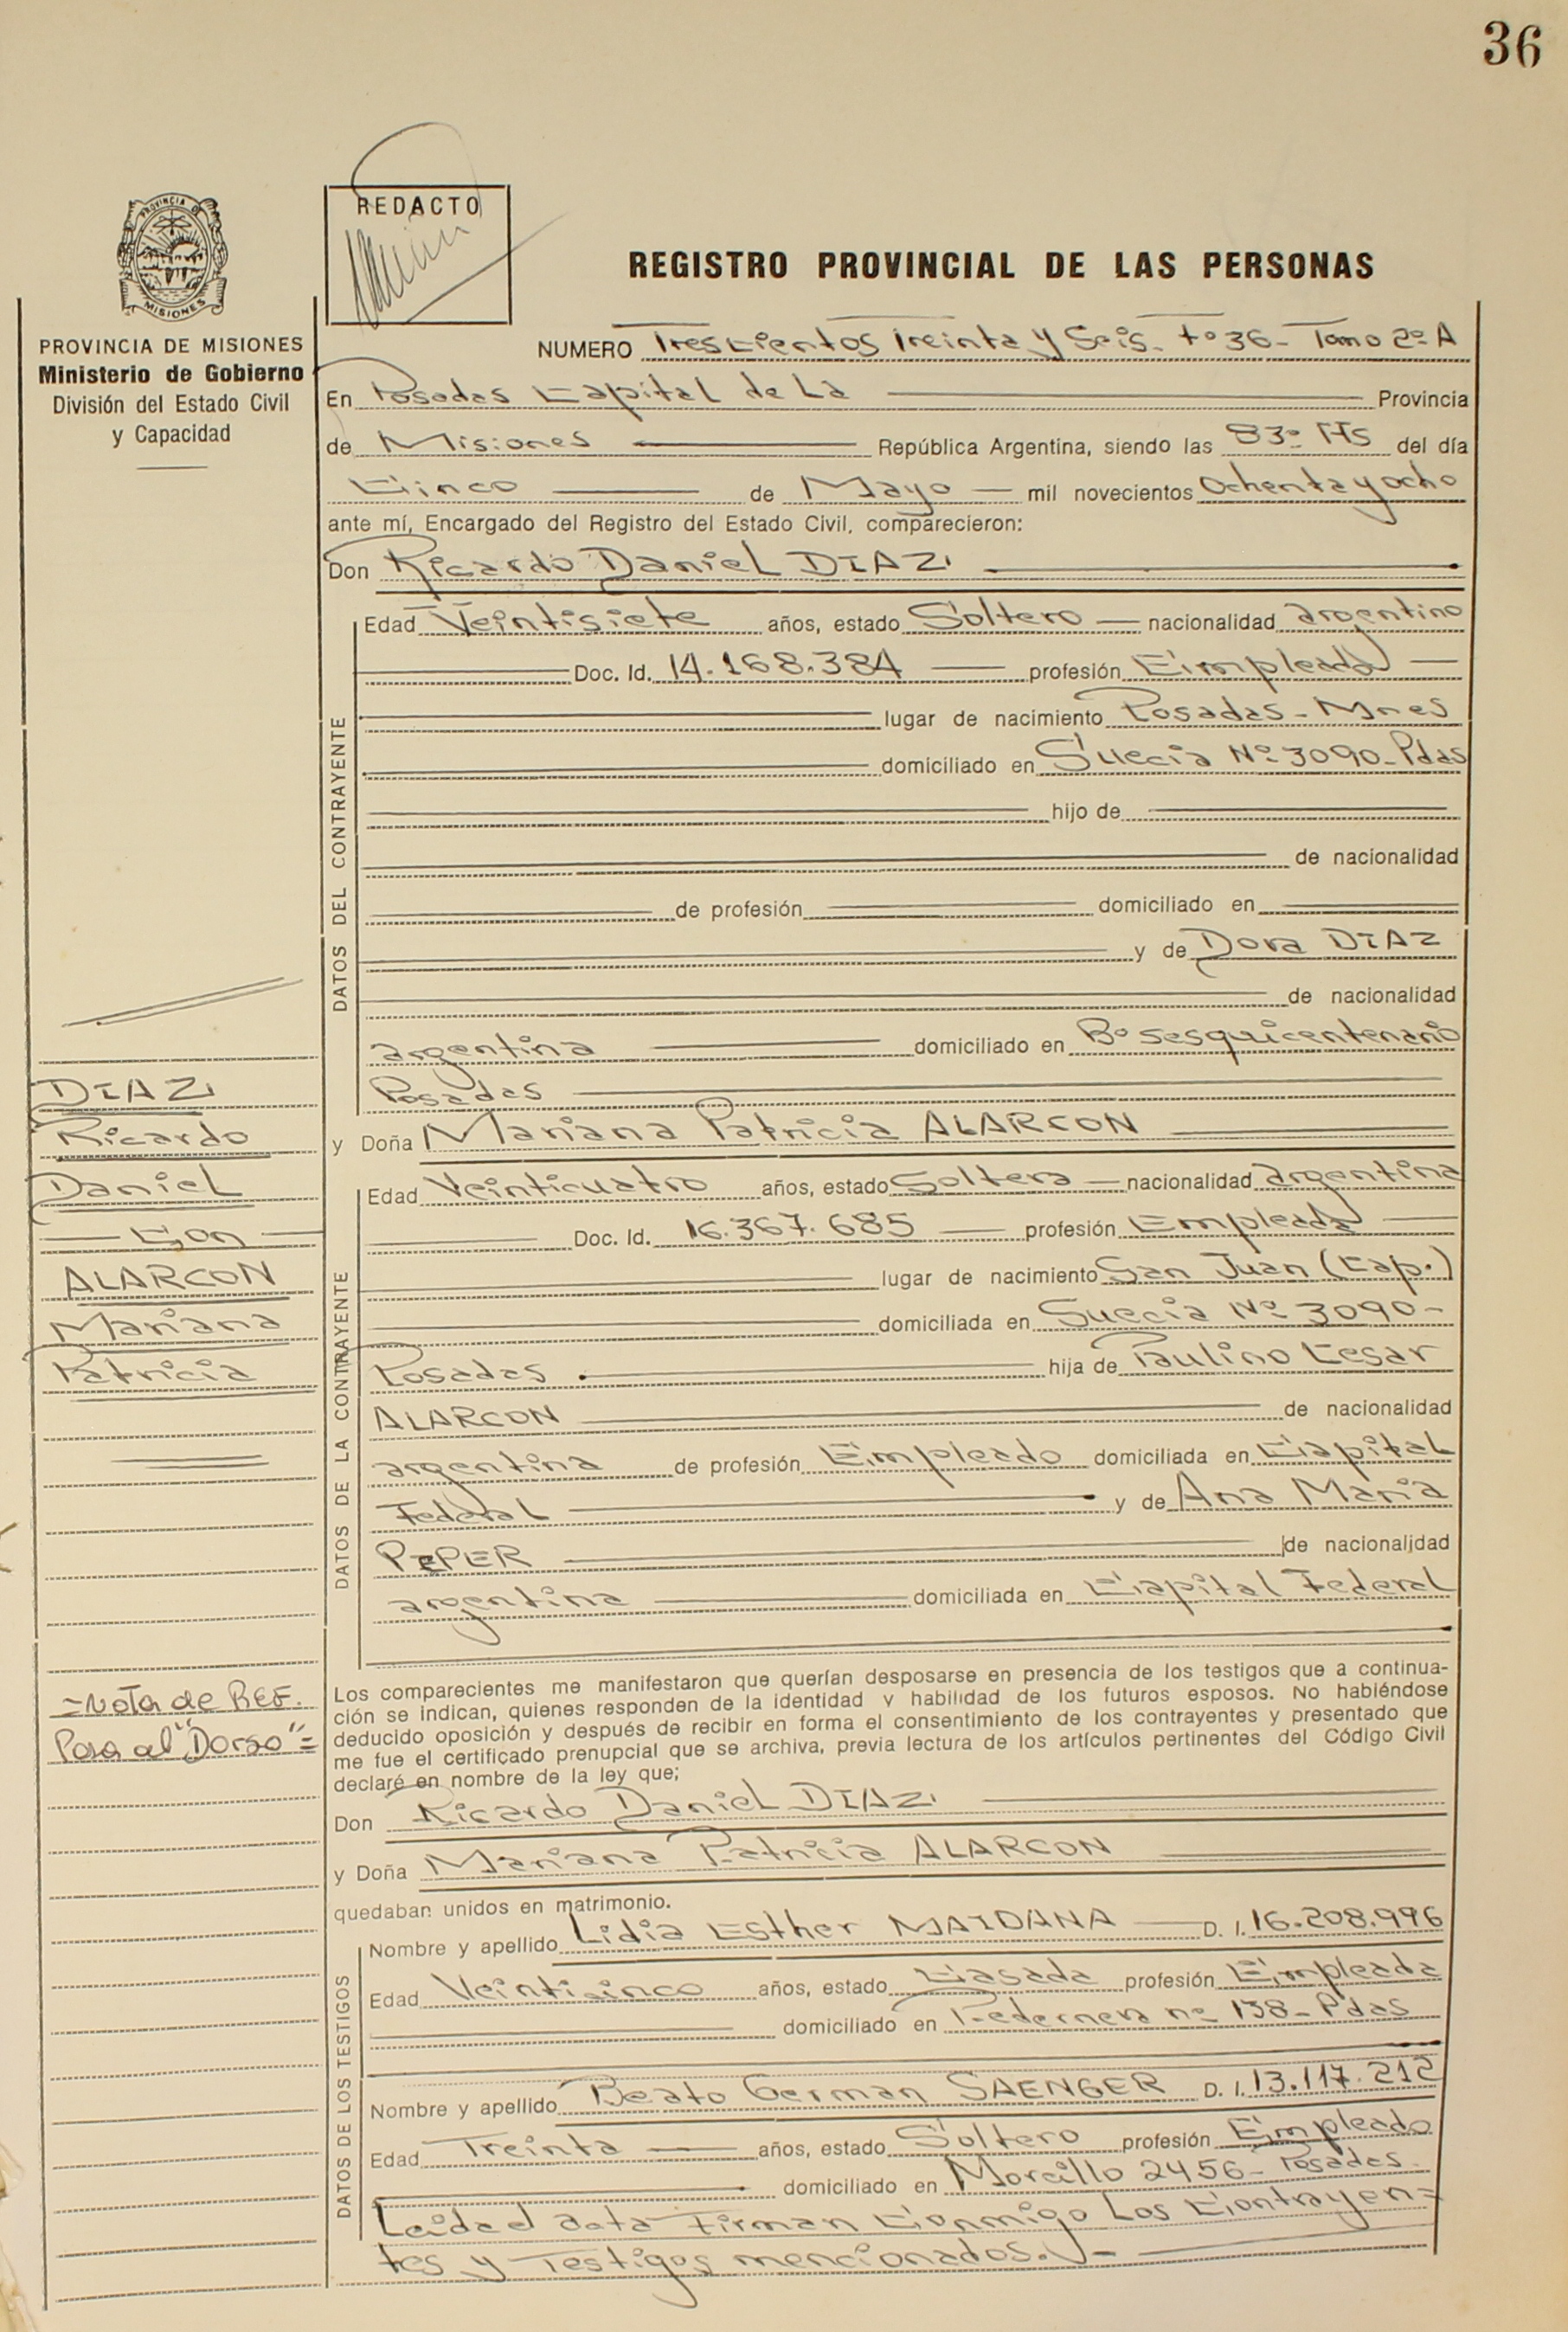 36
PROVINCIA DE
MISIONES
REDACTO
REGISTRO PROVINCIAL DE LAS PERSONAS
PROVINCIA DE MISIONES
Ministerio de Gobierno
División del Estado Civil
y Capacidad
NUMERO Trescientos Treinta y Seis. fº 36- Tomo 2º A
En Posadas Capital de La Provincia
de Misiones República Argentina, siendo las 8³⁰ Hs del día
Cinco de Mayo mil novecientos Ochenta y ocho
ante mí, Encargado del Registro del Estado Civil, comparecieron:
Don Ricardo Daniel DIAZ
DATOS DEL CONTRAYENTE
Edad Veintisiete años, estado Soltero nacionalidad argentino
Doc. Id. 14.168.384 profesión Empleado
lugar de nacimiento Posadas - Mnes
domiciliado en Suecia Nº 3090- Pdas
hijo de
de nacionalidad
de profesión domiciliado en
y de Dora DIAZ
de nacionalidad
argentina domiciliado en Bº Sesquicentenario
Posadas
y Doña Mariana Patricia ALARCON
DATOS DE LA CONTRAYENTE
Edad Veinticuatro años, estado Soltera nacionalidad argentina
Doc. Id. 16.367.685 profesión Empleada
lugar de nacimiento San Juan (Cap.)
domiciliada en Suecia Nº 3090-
Posadas hija de Paulino Cesar
ALARCON de nacionalidad
argentina de profesión Empleado domiciliada en Capital
Federal y de Ana Maria
PIPER de nacionalidad
argentina domiciliada en Capital Federal
DIAZ
Ricardo
Daniel
Con
ALARCON
Mariana
Patricia
=Nota de REF.
Pasa al "Dorso"=
Los comparecientes me manifestaron que querían desposarse en presencia de los testigos que a continua-
ción se indican, quienes responden de la identidad y habilidad de los futuros esposos. No habiéndose
deducido oposición y después de recibir en forma el consentimiento de los contrayentes y presentado que
me fue el certificado prenupcial que se archiva, previa lectura de los artículos pertinentes del Código Civil
declaré en nombre de la ley que;
Don Ricardo Daniel DIAZ
y Doña Mariana Patricia ALARCON
quedaban unidos en matrimonio.
DATOS DE LOS TESTIGOS
Nombre y apellido Lidia Esther MAIDANA D. I. 16.208.996
Edad Veinticinco años, estado Casada profesión Empleada
domiciliado en Pedernera nº 138- Pdas
Nombre y apellido Beato German SAENGER D. I. 13.117.212
Edad Treinta años, estado Soltero profesión Empleado
domiciliado en Morcillo 2456- Posadas.
Leida el acta Firman Conmigo Los Contrayen=
tes y Testigos mencionados.-